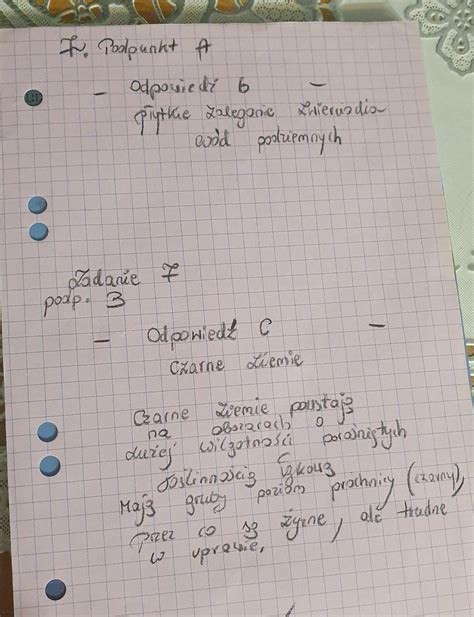 7. Podpunkt A
- Odpowiedź b -
płytkie zaleganie zwierciadła
wód podziemnych
Zadanie 7
podp. B
- Odpowiedź C -
Czarne ziemie
Czarne ziemie powstają
na obszarach o
dużej wilgotności porośniętych
roślinnością łąkową
Mają gruby poziom próchnicy (czarny),
przez co są żyzne, ale trudne
w uprawie.